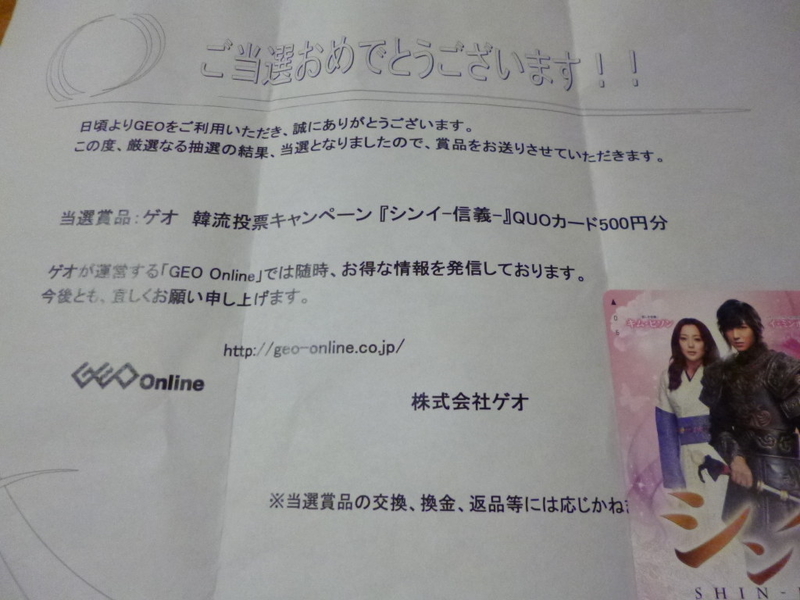 ご当選おめでとうございます！！
日頃よりGEOをご利用いただき、誠にありがとうございます。
この度、厳選なる抽選の結果、当選となりましたので、賞品をお送りさせていただきます。
当選賞品：ゲオ　韓流投票キャンペーン『シンイ-信義-』QUOカード500円分
ゲオが運営する「GEO Online」では随時、お得な情報を発信しております。
今後とも、宜しくお願い申し上げます。
http://geo-online.co.jp/
GEO Online
株式会社ゲオ
※当選賞品の交換、換金、返品等には応じかねま
キム・ヒソン
シン
SHIN-